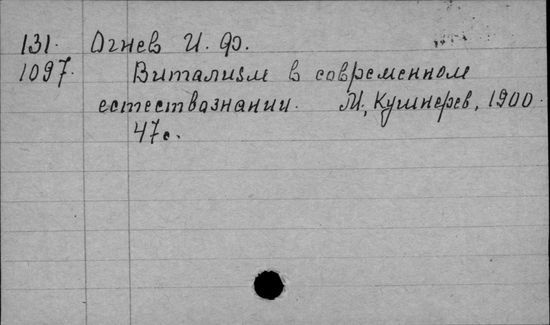 131. Огнев И. Ф.
1097. Витализм в современном
естествазнании. М., Кушнерев, 1900.
47с.